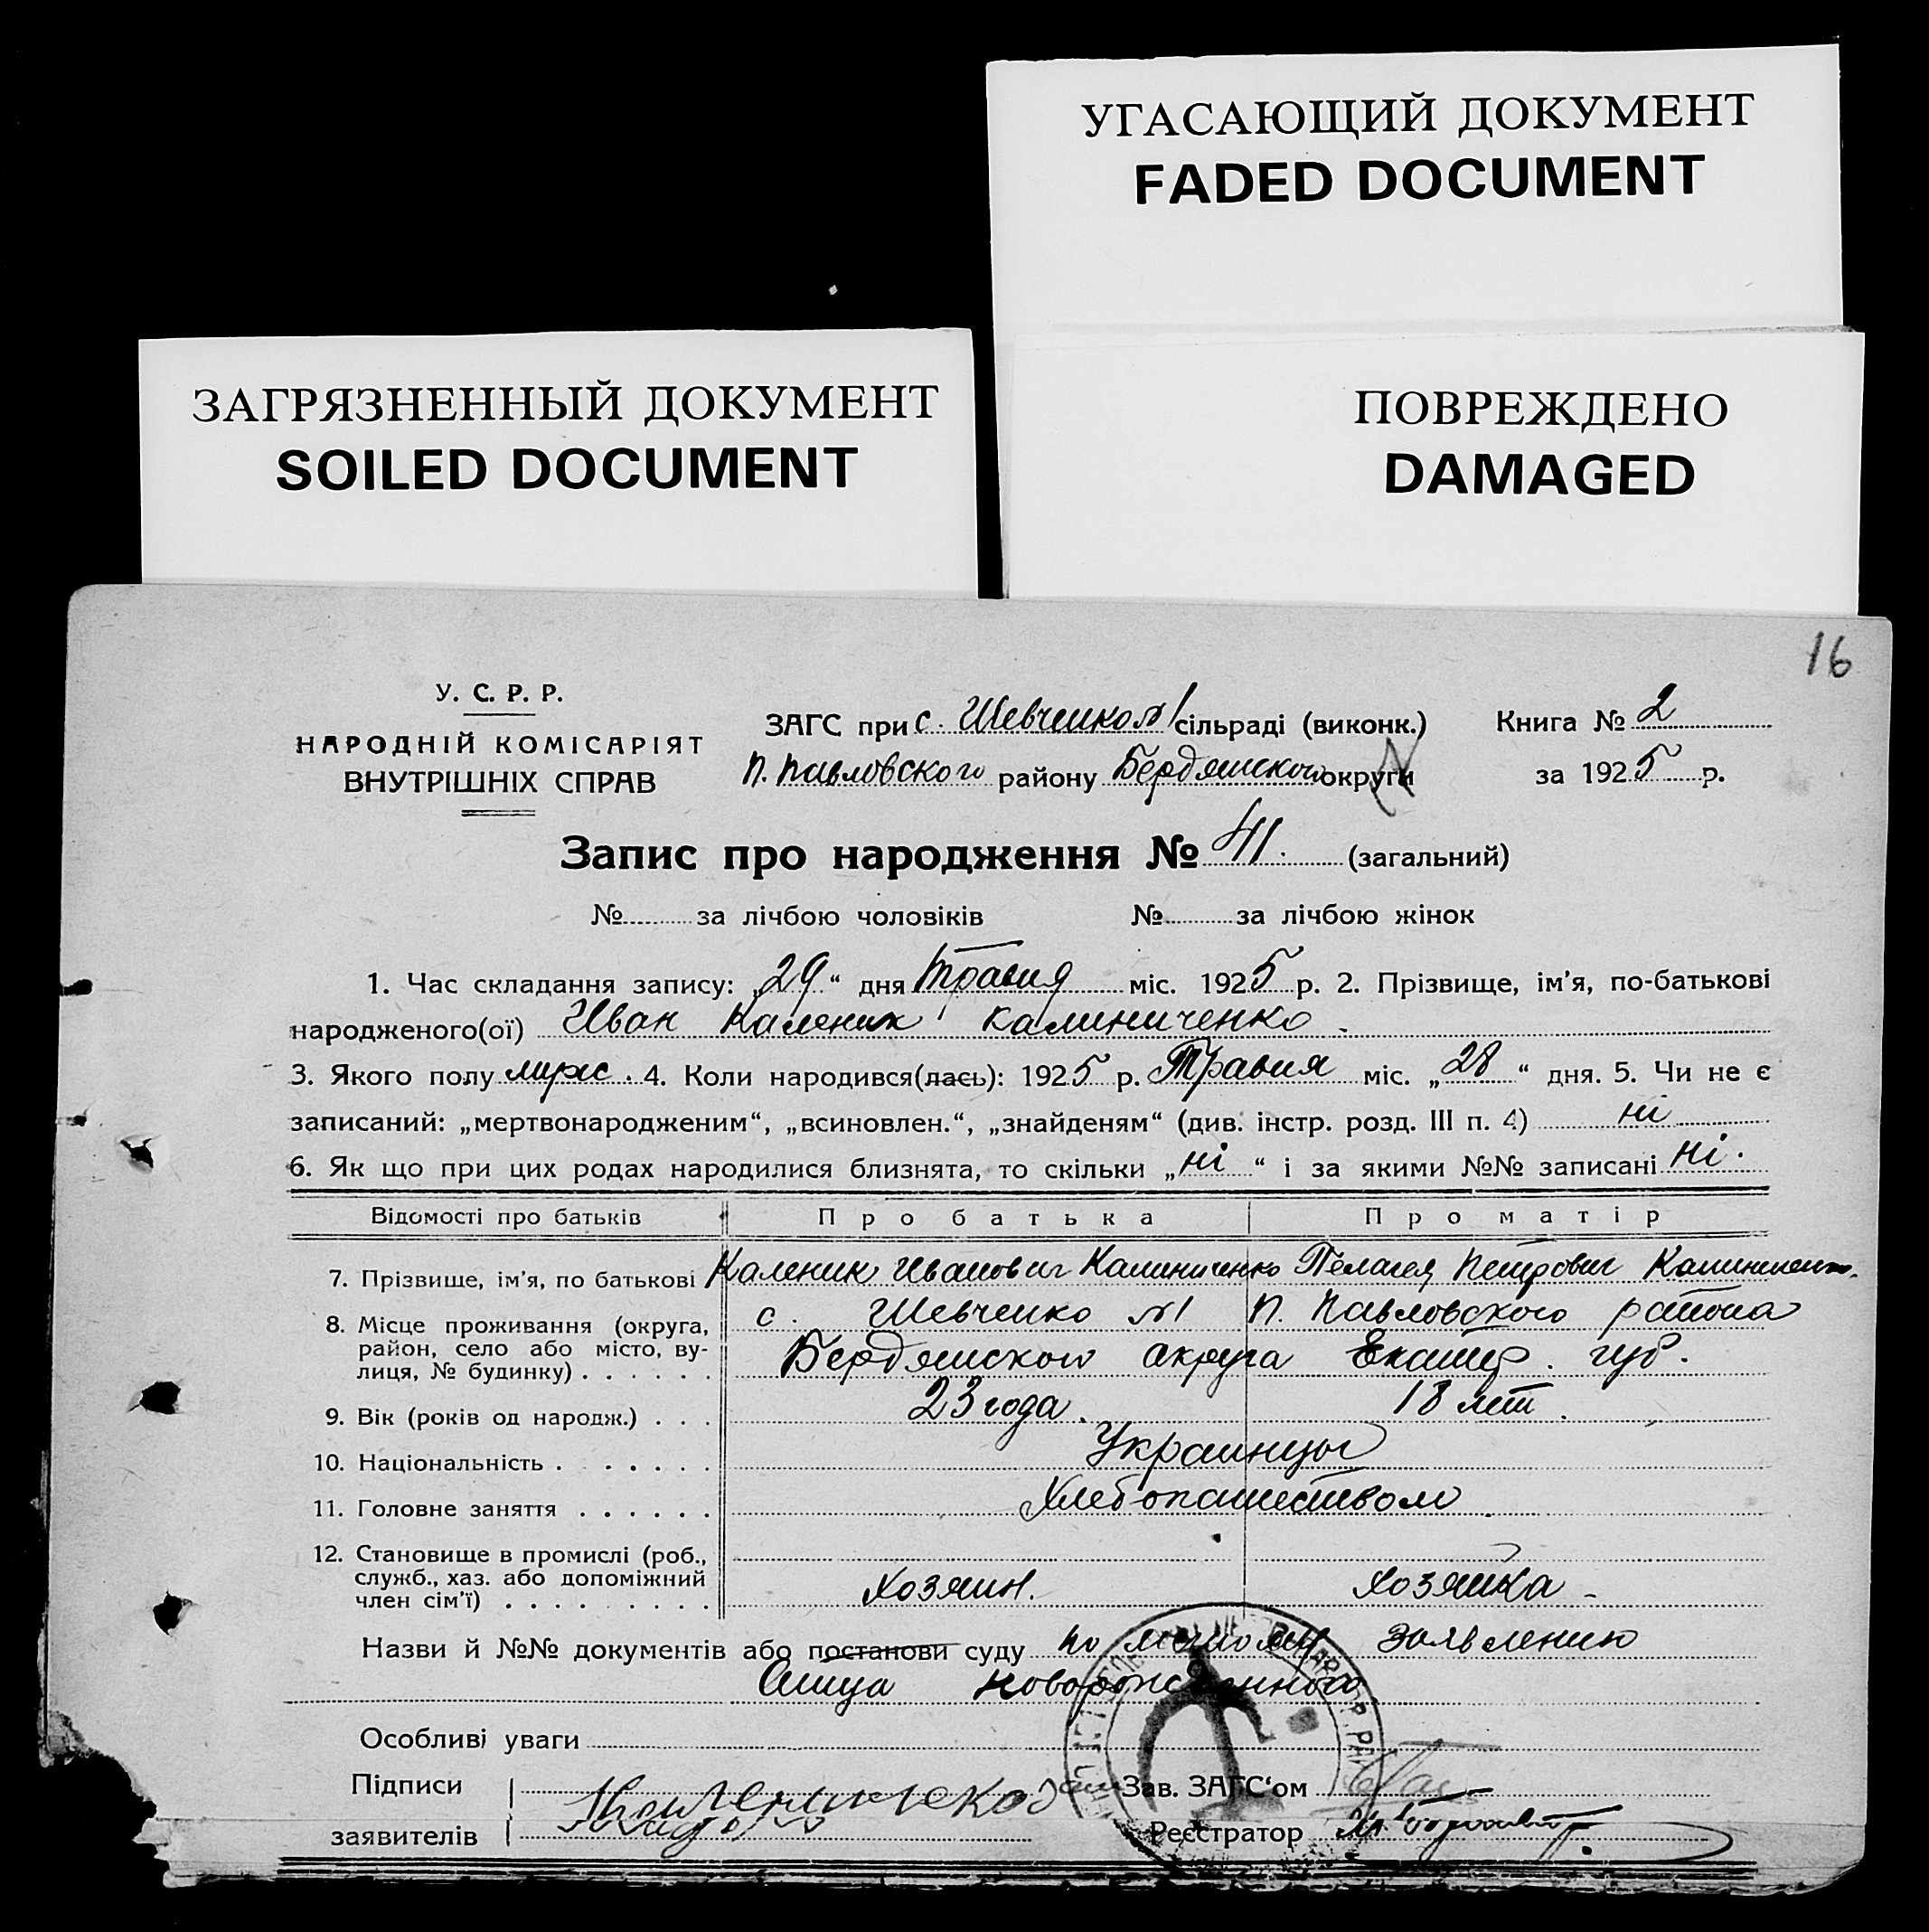 УГАСАЮЩИЙ ДОКУМЕНТ
FADED DOCUMENT
ЗАГРЯЗНЕННЫЙ ДОКУМЕНТ
SOILED DOCUMENT
ПОВРЕЖДЕНО
DAMAGED
16
У. С. Р. Р.
НАРОДНІЙ КОМІСАРІЯТ
ВНУТРІШНІХ СПРАВ
ЗАГС при с. Шевченко №1 сільраді (виконк.)
П. Павловского району Бердянского округи
Книга № 2
за 1925 р.
Запис про народження № 411. (загальний)
№ за лічбою чоловіків № за лічбою жінок
1. Час складання запису: „29“ дня Травня міс. 1925 р. 2. Прізвище, ім'я, по-батькові
народженого(ої) Иван Каленик Калиниченко.
3. Якого полу муж. 4. Коли народився(лась): 1925 р. Травня міс. „28“ дня. 5. Чи не є
записаний: „мертвонародженим“, „всиновлен.“, „знайденям“ (див. інстр. розд. III п. 4) ні
6. Як що при цих родах народилися близнята, то скільки „ні“ і за якими №№ записані ні.
Відомості про батьків Про батька Про матір
7. Прізвище, ім'я, по батькові Каленик Иванович Калиниченко Пелагея Петрович Калиниченко.
8. Місце проживання (округа, район, село або місто, вулиця, № будинку) . . . . . . с. Шевченко №1 П. Павловского района
Бердянского округа Екатер. губ.
9. Вік (років од народж.) . . . 23 года. 18 лет.
10. Національність . . . . . . Украинцы
11. Головне заняття . . . . . . Хлебопашеством
12. Становище в промислі (роб.,
служб., хаз. або допоміжний
член сім'ї) . . . . . . . . . Хозяин. Хозяйка -
Назви й №№ документів або постанови суду по личному заявлению
отца новорожденного
Особливі уваги
Підписи
заявителів
Зав. ЗАГС'ом
Реєстратор